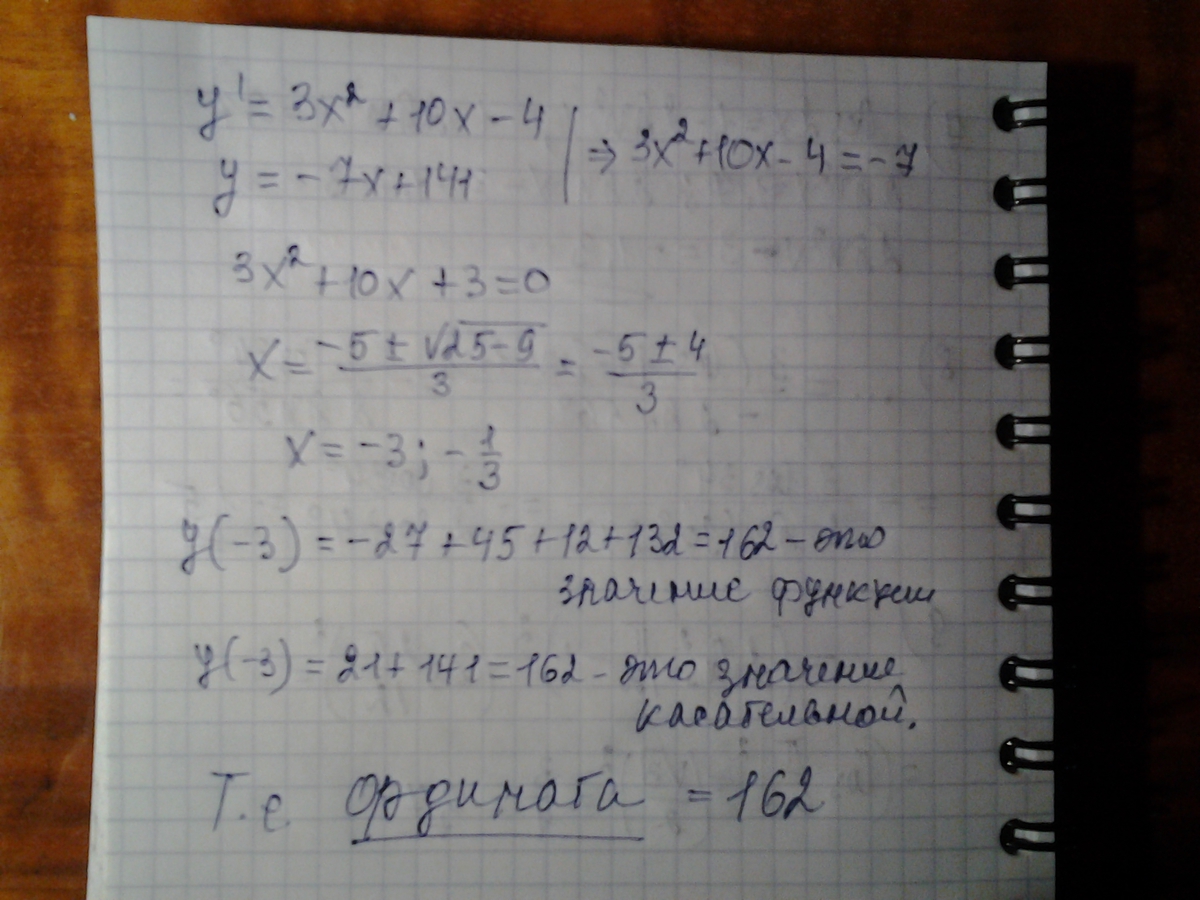 y' = 3x² + 10x - 4 | ⇒ 3x² + 10x - 4 = -7
y = -7x + 141
3x² + 10x + 3 = 0
x = (-5 ± √(25-9))/3 = (-5 ± 4)/3
x = -3; -1/3
y(-3) = -27 + 45 + 12 + 132 = 162 - это
значение функции
y(-3) = 21 + 141 = 162 - это значение
касательной.
Т.е ордината = 162